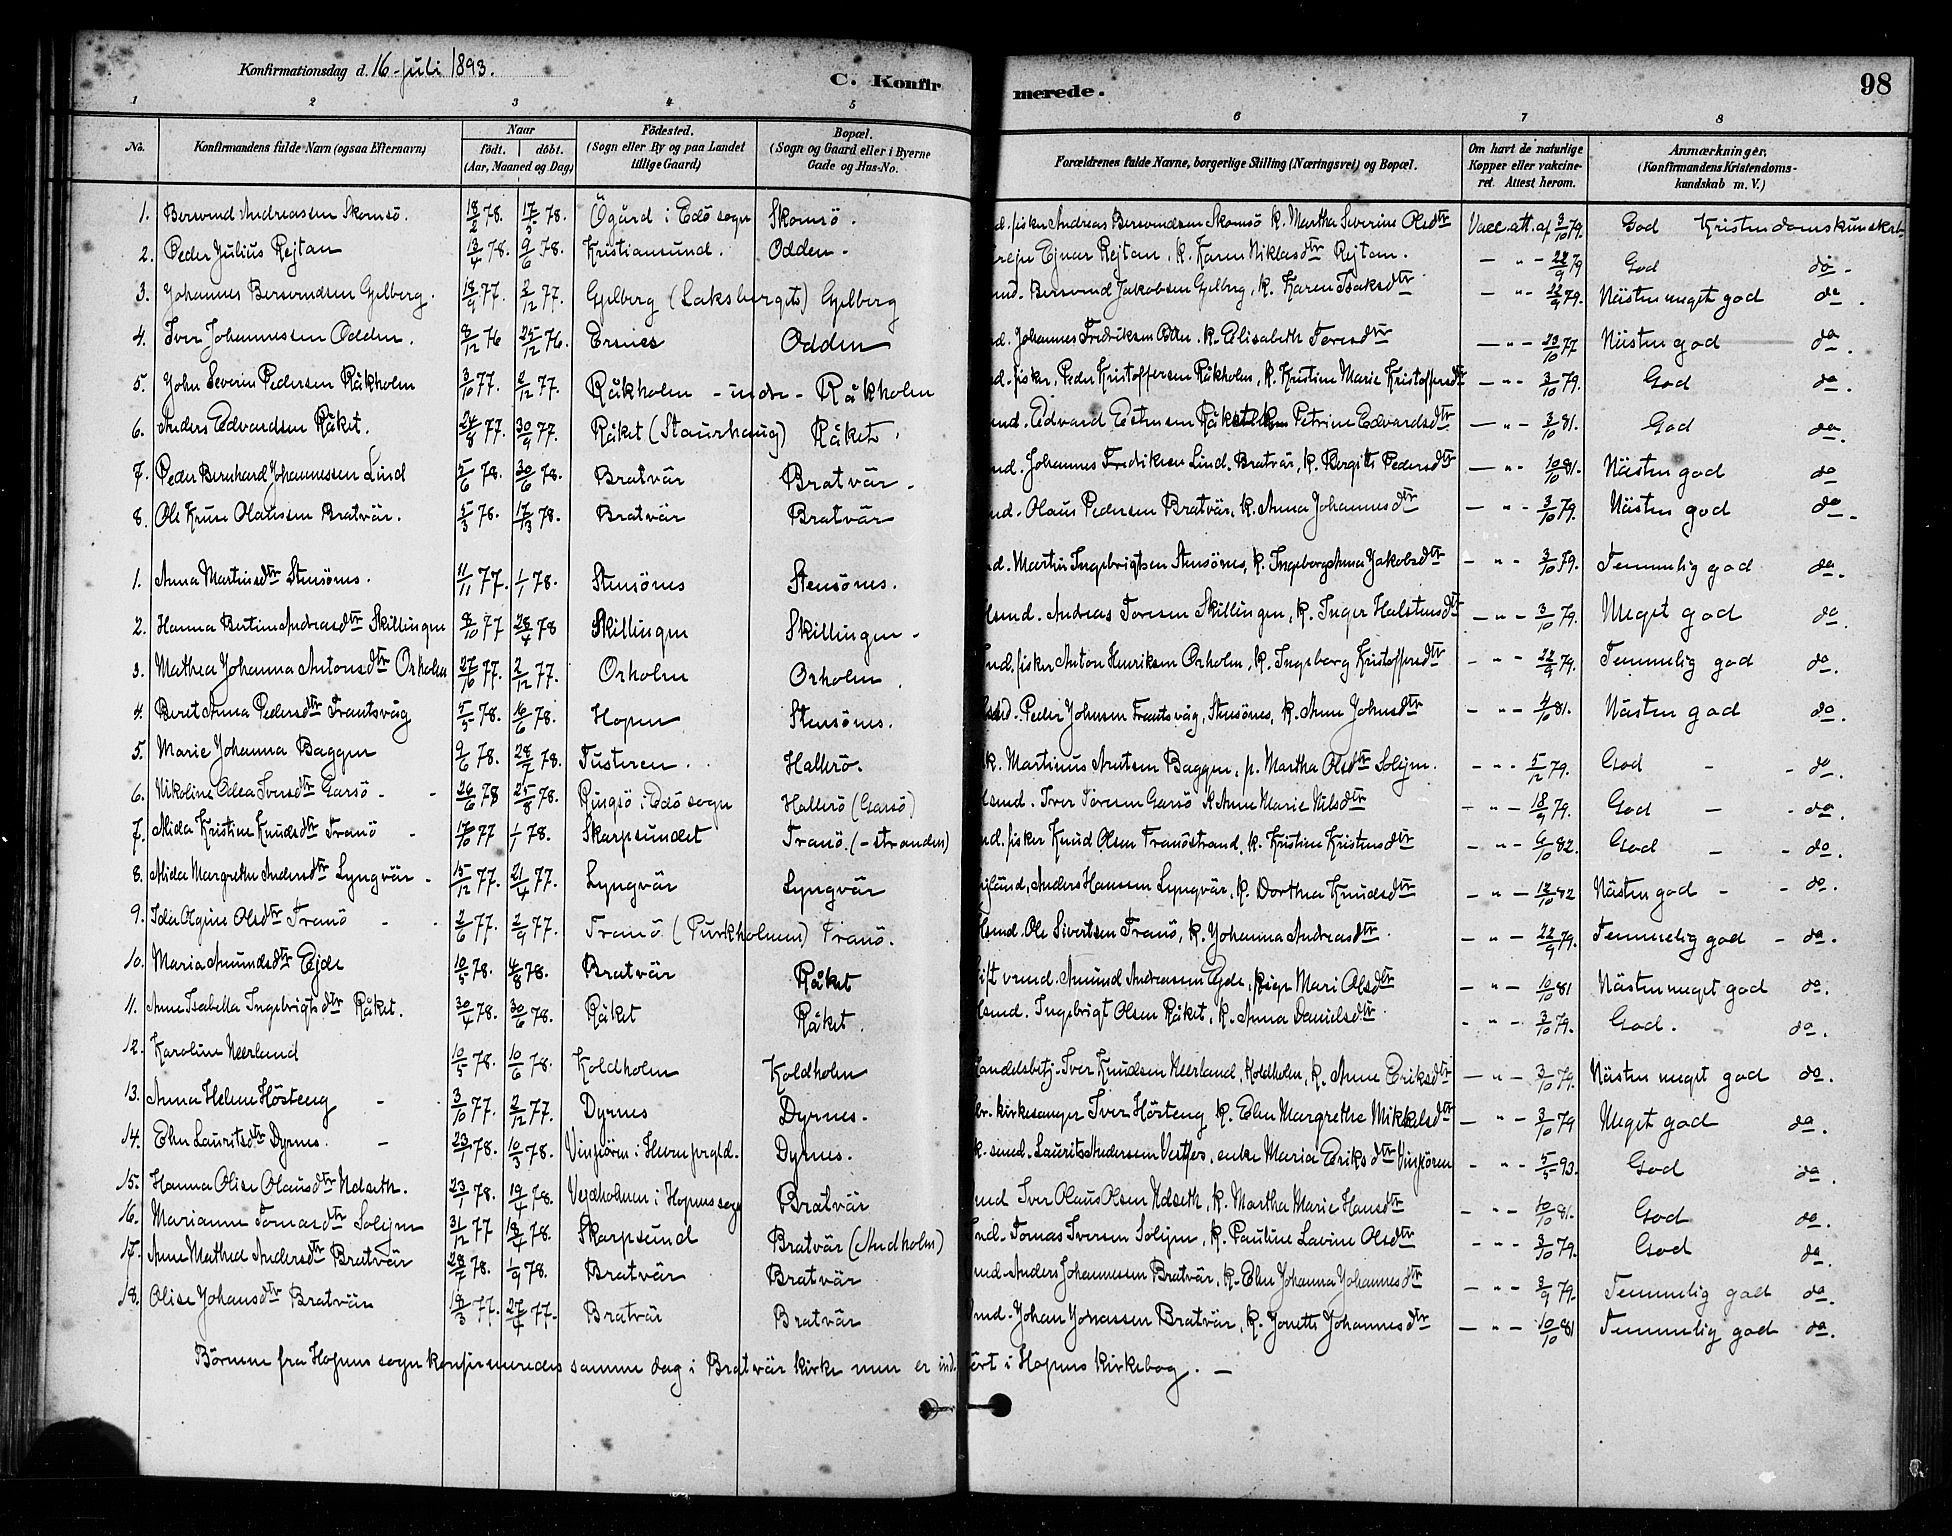 Konfirmationsdag d. 16 juli 1893.
C. Konfirmerede.
98
1 2 3 4 5 6 7 8
No. Konfirmandens fulde Navn (ogsaa Efternavn) Naar födt. döbt. (Aar, Maaned og Dag) Födested. (Sogn eller By og paa Landet tillige Gaard) Bopæl. (Sogn og Gaard eller i Byerne Gade og Hus-No. Forældrenes fulde Navne, borgerlige Stilling (Næringsvei) og Bopæl. Om havt de naturlige Kopper eller vakcineret. Attest herom. Anmærkninger, (Konfirmandens Kristendomskundskab m. V.)
1. Bersvend Andreassen Skomsö. 18/2 78. 17/5 78. Ögård i Edö sogn Skomsö. fisker Andreas Bersvendsen Skomsö k. Martha Severine Olsdtr Vacc. att. af 3/10 79. God Kristendomskundskab
2. Peder Julius Rejtan 13/4 78. 9/6 78. Kristiansund. Odden. Ejnar Rejtan, k. Karen Niklasdtr Rejtan. — " — 22/9 79 God do
3. Johannes Bersvendsen Gjelberg. 18/9 77. 2/12 77. Gjelberg (Laksberget) Gjelberg Bersvend Jakobsen Gjelberg, k. Karen Isaksdtr — " — 22/9 79. Nästen meget god do.
4. Iver Johannessen Odden. 8/12 76 25/12 76. Ersnes Odden Johannes Fredriksen Odden. k. Elisabeth Toresdtr — " — 23/10 77 Nästen god do.
5. John Severin Pedersen Råkholm 3/10 77. 2/12 77. Råkholm - indre - Råkholm fisker, Peder Kristoffersen Råkholm, k. Kristine Marie Kristoffersdtr — " — 3/10 79. God do.
6. Anders Edvardsen Råket. 24/8 77. 30/9 77. Råket (Staurhaug) Råket. Edvard Estensen Råket k. Petrine Edvardsdtr — " — 3/10 81. God do.
7. Peder Bernhard Johannessen Lind 5/6 78. 30/6 78. Bratvär Bratvär. Johannes Fredriksen Lind. Bratvär, k. Bergitte Pedersdtr — " — 10/10 81. Nästen god do
8. Ole Kruse Olaussen Bratvär. 5/3 78. 17/3 78. Bratvär Bratvär Olaus Pedersen Bratvär, k. Anna Johannesdtr — " — 3/10 79. Nästen god do.
1. Anna Martinsdtr Stensönes. 11/11 77. 1/1 78. Stensönes Stensönes. Martin Ingebrigtsen Stensönes, k. Ingeborg Anna Jakobsdtr — " — 3/10 79. Temmelig god do.
2. Hanna Bertine Andreasdtr Skillingen 8/10 77 28/4 78 Skillingen Skillingen. Andreas Toresen Skillingen, k. Inger Halstensdtr — " — 3/10 79. Meget god do.
3. Mathea Johanna Antonsdtr Orholm 27/10 77. 2/12 77. Orholm Orholm. fisker Anton Henriksen Orholm, k. Ingeborg Kristoffersdtr — " — 22/9 79. Temmelig god do.
4. Beret Anna Pedersdtr Frantsvåg 5/5 78. 16/6 78. Hopen Stensönes. Peder Johnsen Frantsvåg, Stensönes, k. Anne Johnsdtr — " — 4/10 81. Nästen god do.
5. Marie Johanna Baggen 9/6 78. 28/7 78. Tusteren. Hallerö. Martinus Arntsen Baggen, p. Martha Olsdtr Solijem. — " — 5/12 79. God do.
6. Nikoline Odea Iversdtr Garsö. 26/6 78 25/8 78. Ringsö i Edö sogn Hallerö (Garsö) Iver Toresen Garsö k. Anne Marie Nilsdtr — " — 18/9 79. God do.
7. Alida Kristine Knudsdtr Tranö 17/10 77 1/1 78. Skarpsundet Tranö. (-stranden) fisker Knud Olsen Tranöstrand, k. Kristine Kristensdtr — " — 6/10 82. God do.
8. Alida Margrethe Andersdtr Lyngvär. 15/12 77. 21/4 77. Lyngvär Lyngvär Anders Hansen Lyngvär, k. Dorthea Knudsdtr — " — 12/10 82 Nästen god do.
9. Ida Olgine Olsdtr Tranö 2/6 77. 2/9 77. Tranö (Purkholmen) Tranö. Ole Sivertsen Tranö, k. Johanna Andreasdtr. — " — 22/9 79. Temmelig god do.
10. Maria Amundsdtr Ejde 10/5 78. 4/8 78. Bratvär Råket Amund Andreassen Ejde, pige Mari Olsdtr — " — 10/10 81 Nästen meget god do.
11. Anne Isabella Ingebrigtsdtr Råket. 30/4 78. 30/6 78. Råket Råket. Ingebrigt Olsen Råket, k. Anna Danielsdtr — " — 3/10 79. God. do.
12. Karoline Neerland 10/5 78. 10/6 78. Koldholm Koldholm Handelsbetj. Iver Knudsen Neerland, Koldholm, k. Anne Eriksdtr — " — 3/10 79. Nästen meget god do.
13. Anna Helene Hösteng 3/10 77. 2/12 77. Dyrnes Dyrnes. kirkesanger Iver Hösteng k. Elen Margrethe Mikkelsdtr — " — 3/10 79 Meget god do.
14. Elen Lauritsdtr Dyrnes. 23/1 78. 10/3 78. Vinjeören i Hevne prgld. Dyrnes. Laurits Andersen, enke Maria Eriksdtr Vinjeören — " — 5/5 93. God do.
15. Hanna Olise Olausdtr Ndseth. 23/1 78. 19/4 78. Vejdholmen i Hopens sogn Bratvär Iver Olaus Olsen Ndseth, k. Martha Marie Hansdtr — " — 10/10 81. God do.
16. Marianne Tomasdtr Solijem 31/12 77 18/4 78. Skarpsund Bratvär (Andholm) Tomas Iversen Solijem, k. Pauline Lavine Olsdtr — " — 3/10 79. God do.
17. Anne Mathea Andersdtr Bratvär 28/7 78. 1/9 78. Bratvär Bratvär Anders Johannessen Bratvär, k. Elen Johanna Johannesdtr — " — 3/9 79. Temmelig god do.
18. Olise Johansdtr Bratvär 18/3 77. 27/4 77. Bratvär Bratvär Johan Jonassen Bratvär, k. Jonette Johannesdtr — " — 10/10 81 Temmelig god do.
Börnene fra Hopens sogn konfirmeredes samme dag i Bratvär kirke men er indfört i Hopens kirkebog. —